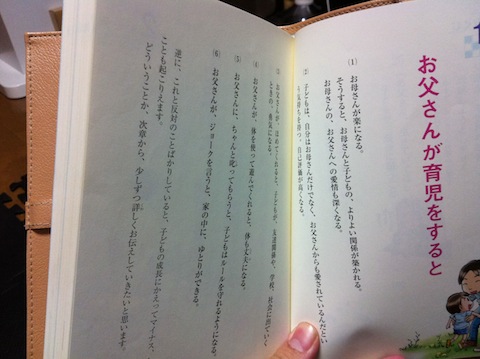 お父さんが育児をすると
① お母さんが楽になる。
そうすると、お母さんと子どもの、よりよい関係が築かれる。
お母さんの、お父さんへの愛情も深くなる。
② 子どもは、自分はお母さんだけでなく、お父さんからも愛されているんだとい
う気持ちを持つ。自己評価が高くなる。
③ お父さんが、ほめてくれると、子どもが、友達関係や、学校、社会に出ていく
ときの、勇気になる。
④ お父さんが、体を使って遊んでくれると、体も丈夫になる。
⑤ お父さんに、ちゃんと叱ってもらうと、子どもはルールを守れるようになる。
⑥ お父さんが、ジョークを言うと、家の中に、ゆとりができる。
逆に、これと反対のことばかりしていると、子どもの成長にかえってマイナス、
ことも起こりえます。
どういうことか、次章から、少しずつ詳しくお伝えしていきたいと思います。